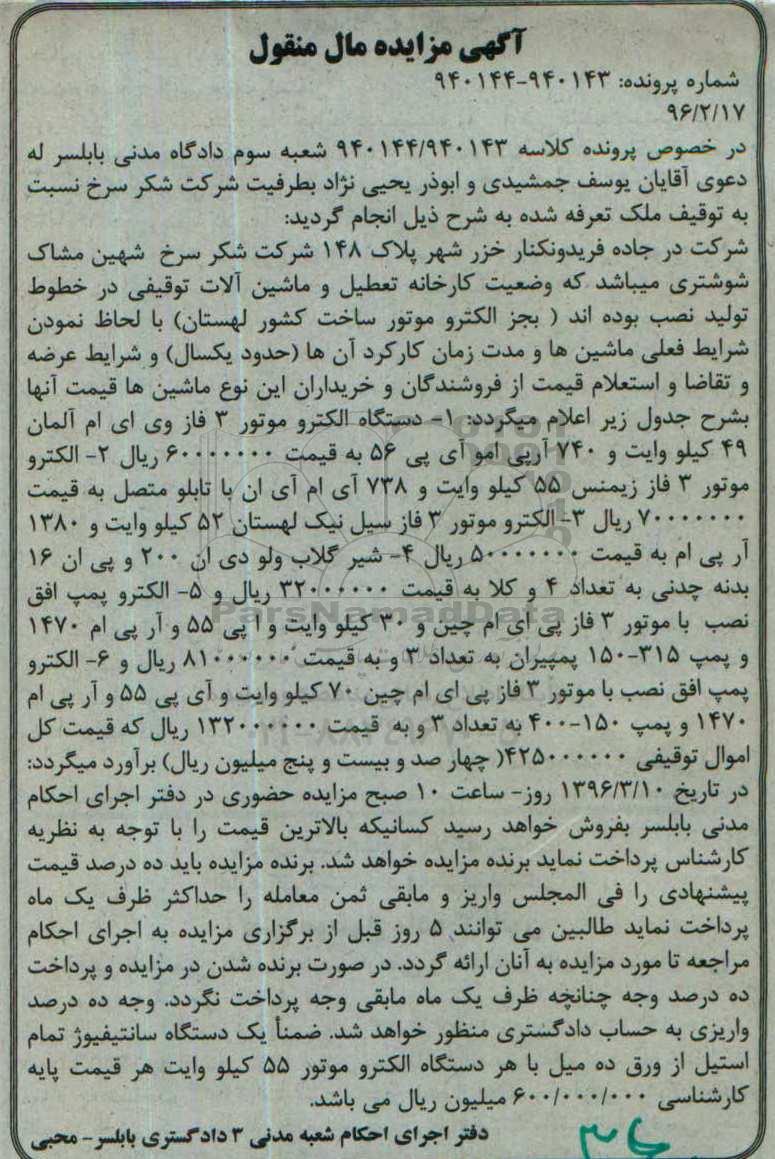 آگهی مزایده مال منقول
شماره پرونده: ۹۴۰۱۴۳-۹۴۰۱۴۴
۹۶/۲/۱۷
در خصوص پرونده کلاسه ۹۴۰۱۴۴/۹۴۰۱۴۳ شعبه سوم دادگاه مدنی بابلسر له
دعوی آقایان یوسف جمشیدی و ابوذر یحیی نژاد بطرفیت شرکت شکر سرخ نسبت
به توقیف ملک تعرفه شده به شرح ذیل انجام گردید:
شرکت در جاده فریدونکنار خزر شهر پلاک ۱۴۸ شرکت شکر سرخ شهین مشاک
شوشتری میباشد که وضعیت کارخانه تعطیل و ماشین آلات توقیفی در خطوط
تولید نصب بوده اند ( بجز الکترو موتور ساخت کشور لهستان) با لحاظ نمودن
شرایط فعلی ماشین ها و مدت زمان کارکرد آن ها (حدود یکسال) و شرایط عرضه
و تقاضا و استعلام قیمت از فروشندگان و خریداران این نوع ماشین ها قیمت آنها
بشرح جدول زیر اعلام میگردد: ۱- دستگاه الکترو موتور ۳ فاز وی ای ام آلمان
۴۹ کیلو وایت و ۷۴۰ آرپی امو آی پی ۵۶ به قیمت ۶۰۰۰۰۰۰۰ ریال ۲- الکترو
موتور ۳ فاز زیمنس ۵۵ کیلو وایت و ۷۳۸ آی ام آی ان با تابلو متصل به قیمت
۷۰۰۰۰۰۰۰ ریال ۳- الکترو موتور ۳ فاز سیل نیک لهستان ۵۲ کیلو وایت و ۱۳۸۰
آر پی ام به قیمت ۵۰۰۰۰۰۰۰ ریال ۴- شیر گلاب ولو دی ان ۲۰۰ و پی ان ۱۶
بدنه چدنی به تعداد ۴ و کلا به قیمت ۳۲۰۰۰۰۰۰ ریال و ۵- الکترو پمپ افق
نصب با موتور ۳ فاز پی ای ام چین و ۳۰ کیلو وایت و ا پی ۵۵ و آر پی ام ۱۴۷۰
و پمپ ۳۱۵-۱۵۰ پمپیران به تعداد ۳ و به قیمت ۸۱۰۰۰۰۰۰ ریال و ۶- الکترو
پمپ افق نصب با موتور ۳ فاز پی ای ام چین ۷۰ کیلو وایت و آی پی ۵۵ و آر پی ام
۱۴۷۰ و پمپ ۱۵۰-۴۰۰ به تعداد ۳ و به قیمت ۱۳۲۰۰۰۰۰۰ ریال که قیمت کل
اموال توقیفی ۴۲۵۰۰۰۰۰۰( چهار صد و بیست و پنج میلیون ریال) برآورد میگردد:
در تاریخ ۱۳۹۶/۳/۱۰ روز- ساعت ۱۰ صبح مزایده حضوری در دفتر اجرای احکام
مدنی بابلسر بفروش خواهد رسید کسانیکه بالاترین قیمت را با توجه به نظریه
کارشناس پرداخت نماید برنده مزایده خواهد شد. برنده مزایده باید ده درصد قیمت
پیشنهادی را فی المجلس واریز و مابقی ثمن معامله را حداکثر ظرف یک ماه
پرداخت نماید طالبین می توانند ۵ روز قبل از برگزاری مزایده به اجرای احکام
مراجعه تا مورد مزایده به آنان ارائه گردد. در صورت برنده شدن در مزایده و پرداخت
ده درصد وجه چنانچه ظرف یک ماه مابقی وجه پرداخت نگردد. وجه ده درصد
واریزی به حساب دادگستری منظور خواهد شد. ضمنأ یک دستگاه سانتیفیوژ تمام
استیل از ورق ده میل با هر دستگاه الکترو موتور ۵۵ کیلو وایت هر قیمت پایه
کارشناسی ۶۰۰/۰۰۰/۰۰۰ میلیون ریال می باشد.
دفتر اجرای احکام شعبه مدنی ۳ دادگستری بابلسر- محبی
ParsNamadData